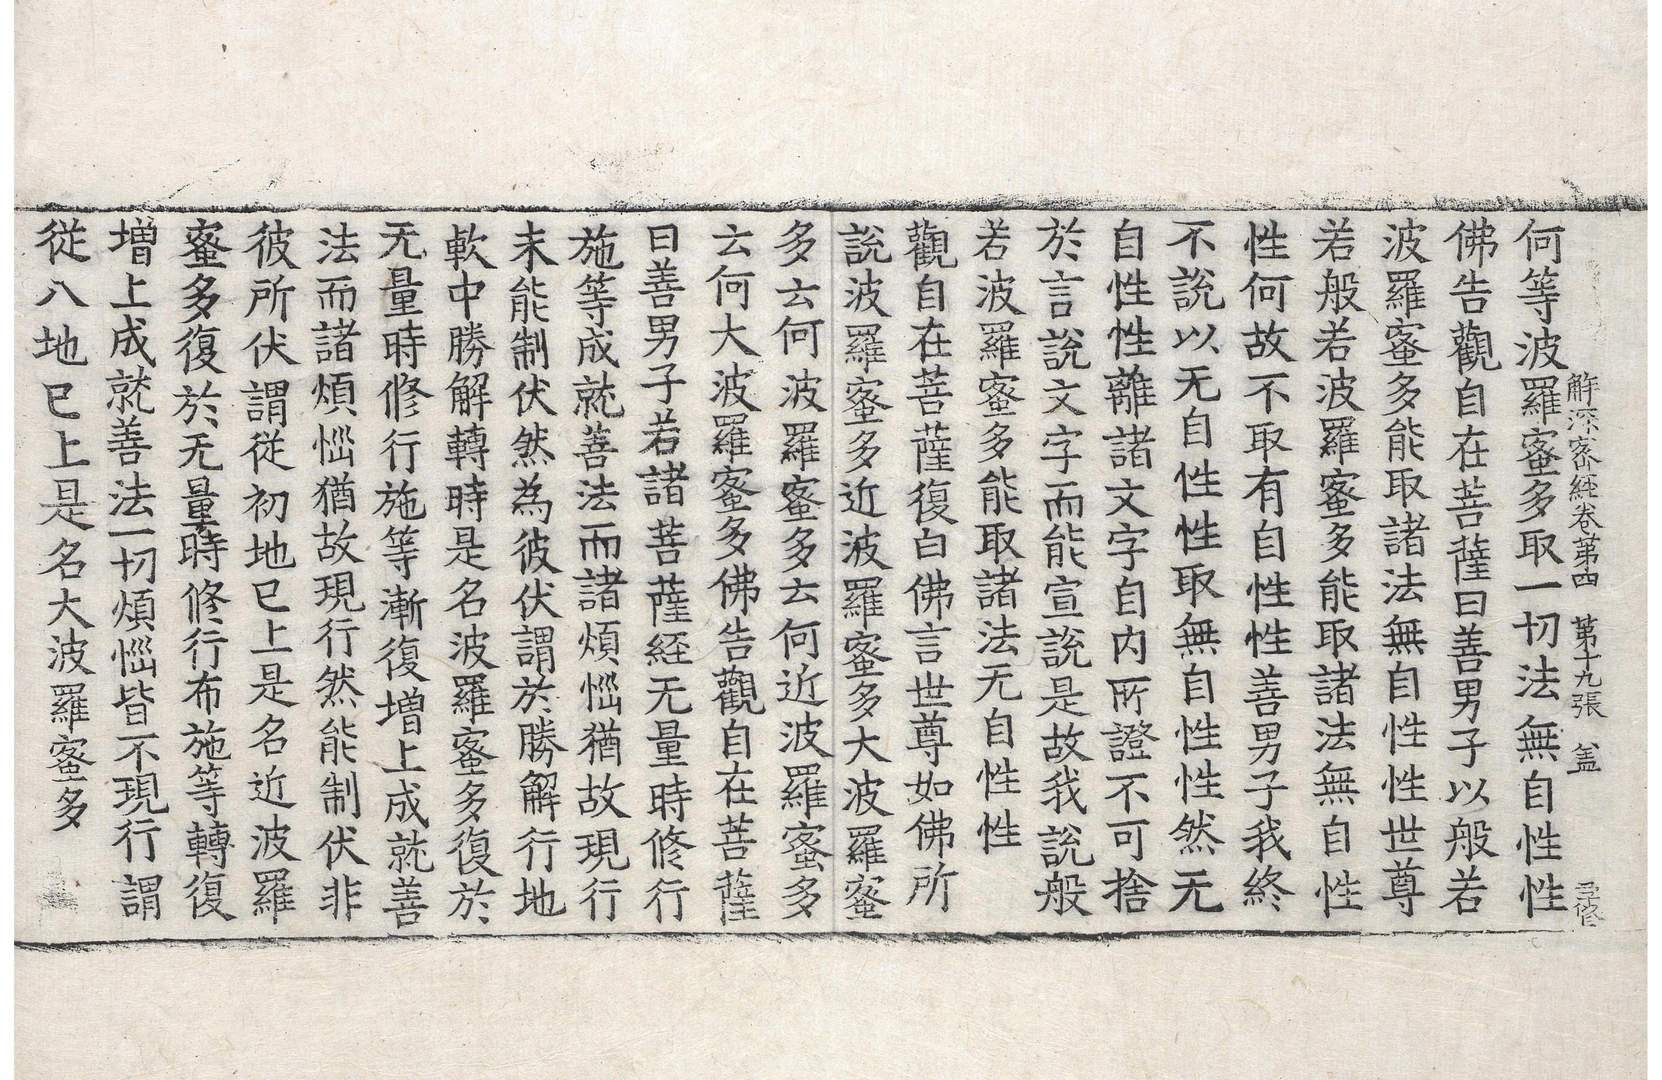 解深密經卷第四 第十九張 盖
何等波羅蜜多取一切法無自性性
佛告觀自在菩薩曰善男子以般若
波羅蜜多能取諸法無自性性世尊
若般若波羅蜜多能取諸法無自性
性何故不取有自性性善男子我終
不說以无自性性取無自性性然无
自性性離諸文字自内所證不可捨
於言說文字而能宣說是故我說般
若波羅蜜多能取諸法无自性性
觀自在菩薩復白佛言世尊如佛所
說波羅蜜多近波羅蜜多大波羅蜜
多云何波羅蜜多云何近波羅蜜多
云何大波羅蜜多佛告觀自在菩薩
曰善男子若諸菩薩経无量時修行
施等成就善法而諸煩惱猶故現行
未能制伏然為彼伏謂於勝解行地
軟中勝解轉時是名波羅蜜多復於
无量時修行施等漸復增上成就善
法而諸煩惱猶故現行然能制伏非
彼所伏謂從初地已上是名近波羅
蜜多復於无量時修行布施等轉復
增上成就善法一切煩惱皆不現行謂
從八地已上是名大波羅蜜多